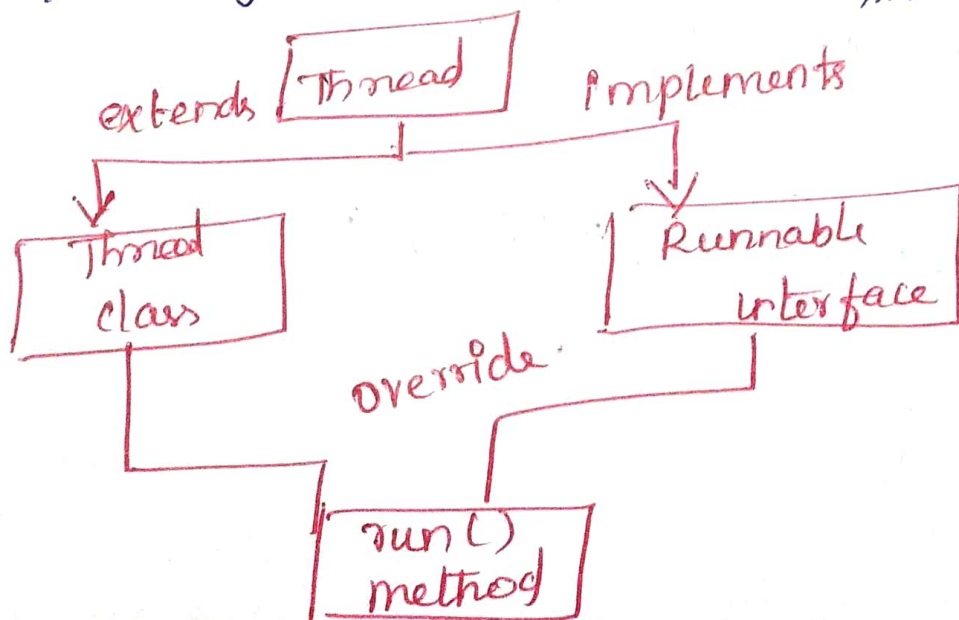 Thread
extends
implements
Thread
class
Runnable
interface
override
run()
method